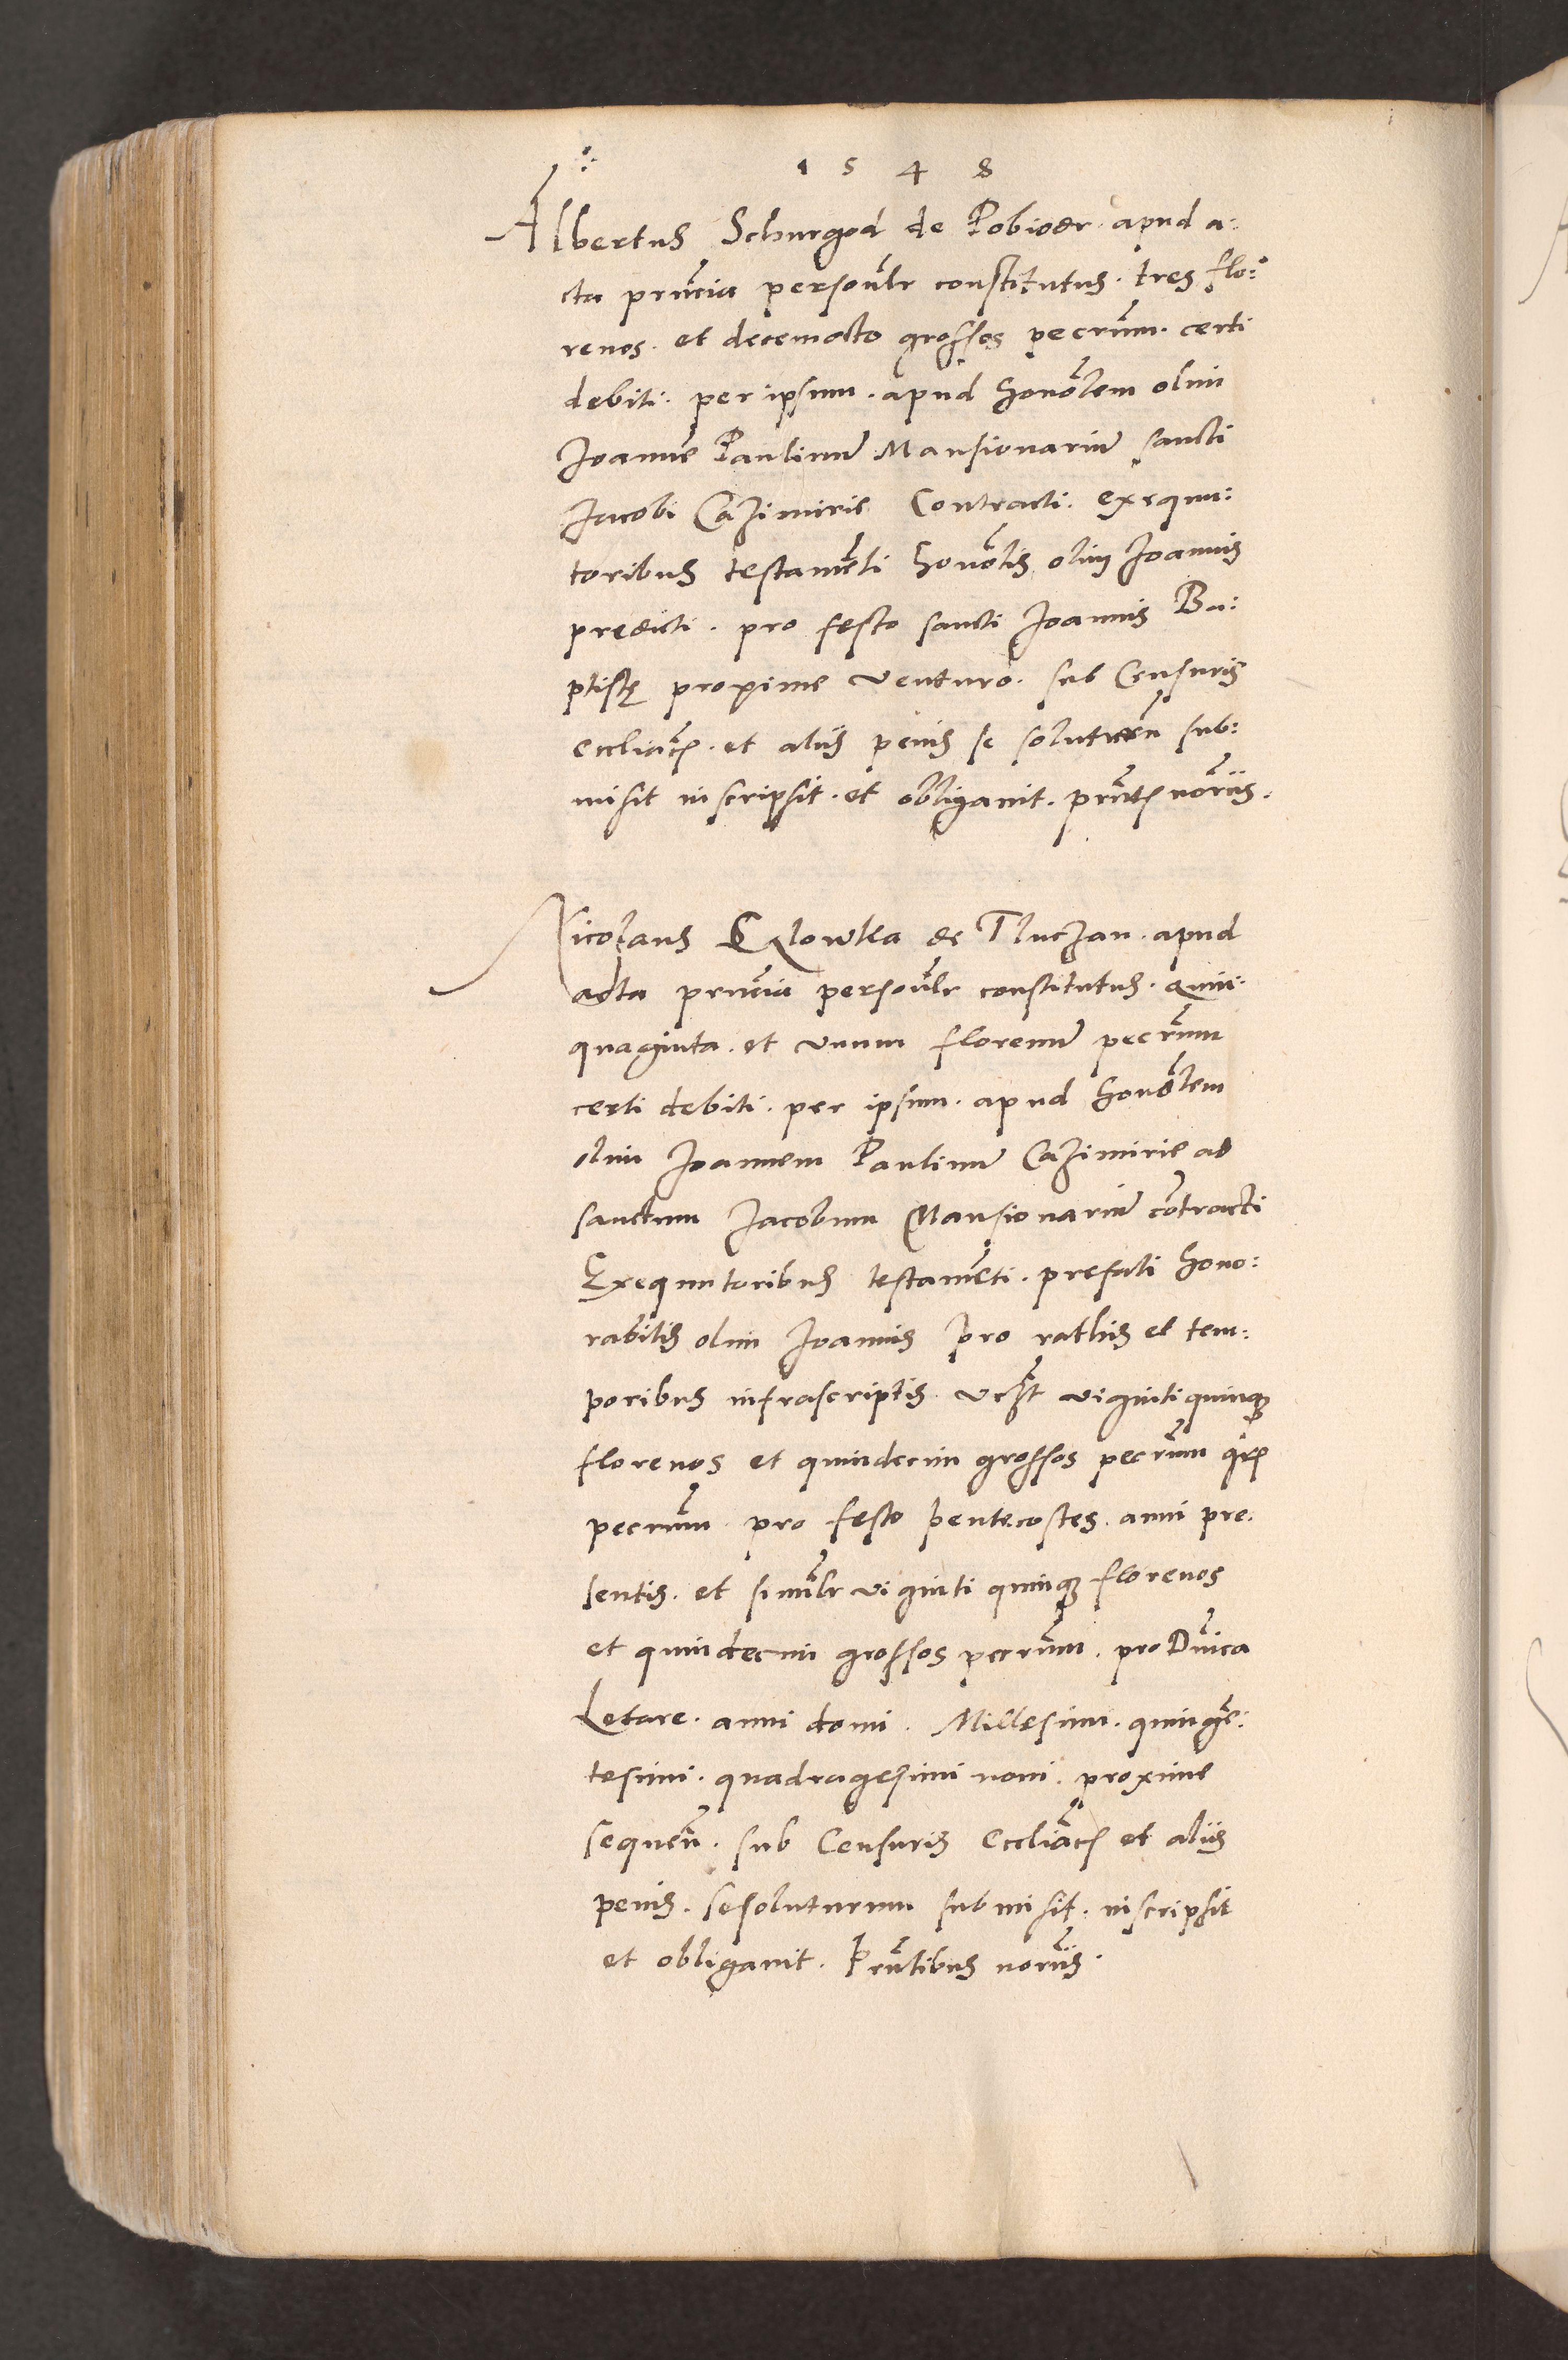 1548
Albertus Schurgod de Pobiedr. apud a:
cta pn̄cia personal̄r constitutus. tres flo:
renos. et decemocto grossos pecn̄um. certi
debiti. per ipsum. apud honōlem olim
Joannē Paulinū Mansionariū sancti
Jacobi Cazimirie Contracti. exequu:
toribus testamēti honōlis olim Joannis
predicti. pro festo sancti Joannis Ba:
ptistę proxime venturo. sub Censuris
eccliāts. et aliis penis se soluturū sub:
misit inscripsit. et obligauit. pn̄tts nōriis.
Nicolaus Glowka de Tluczan. apud
acta pn̄cia personal̄r constitutus. quin:
quaginta. et vnum florenū pecn̄um
certi debiti. per ipsum. apud honōlem
olim Joannem Paulinū Cazimirie ad
sanctum Jacobum Mansionariū cōtracti
Exequutoribus testamēti. prefati hono:
rabilis olim Joannis pro rathis et tem:
poribus infrascriptis. vcz̄t viginti quinq3
florenos et quindecim grossos pecn̄um
pecn̄um. pro festo pentecostes. anni pre:
sentis. et simil̄r viginti quinq3 florenos
et quindecim grossos pecn̄um. pro Dn̄ica
Letare. anni domi. Millesimi. quingē:
tesimi. quadragesimi noni. proxime
sequēn. sub Censuris Eccliāts et aliis
penis. se soluturum submisit. inscripsit
et obligauit. Prn̄tibus noriis.